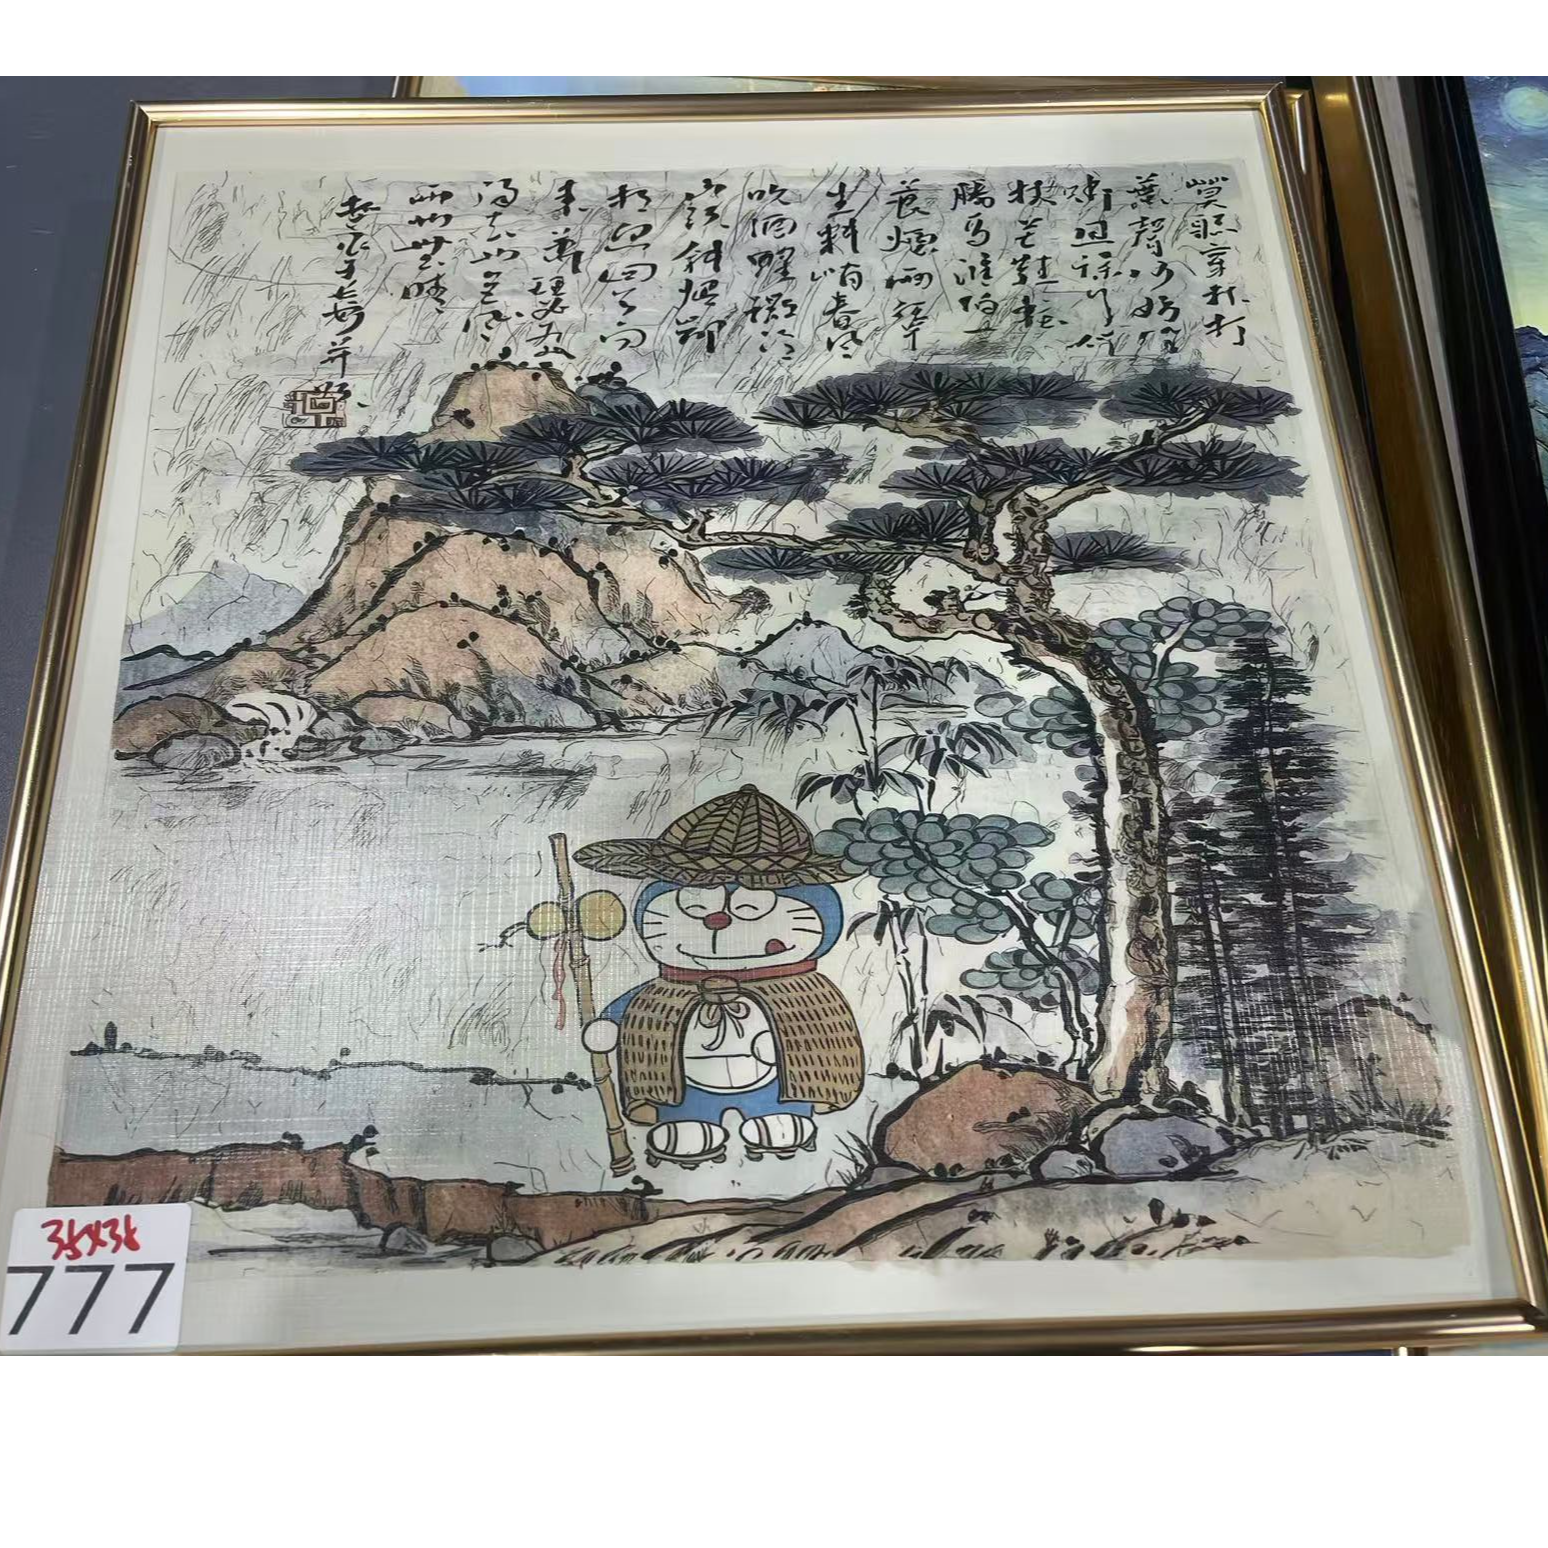 莫聽穿林打
葉聲何妨吟
嘯且徐行竹
杖芒鞋輕
勝馬誰怕一
蓑煙雨任平
生料峭春風
吹酒醒微冷
山頭斜照卻
相迎回首向
來蕭瑟處
歸去也無風
雨也無晴
777